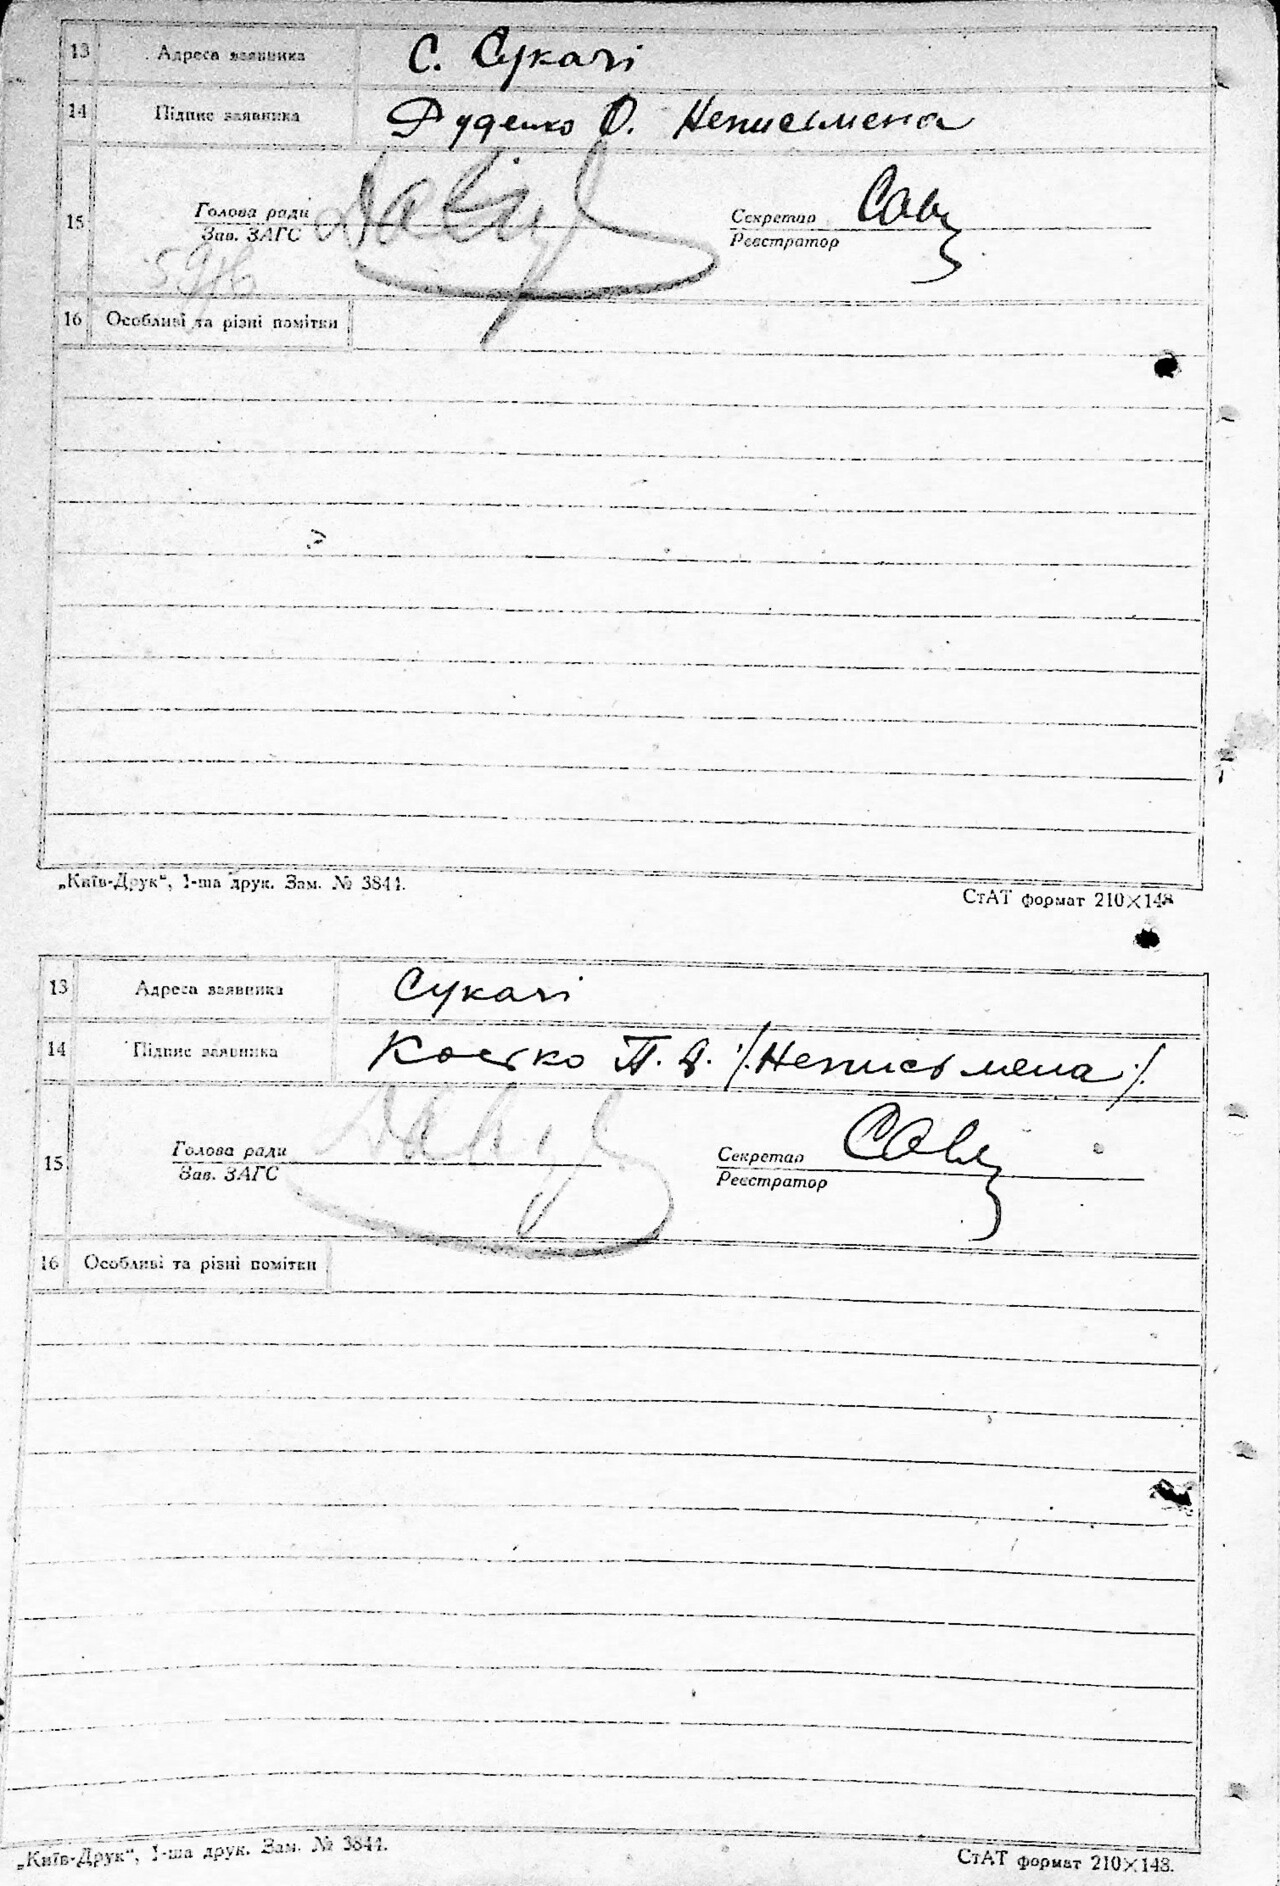 13 Адреса заявника С. Сукачі
14 Підпис заявника Руденко О. Неписьмена
15 Голова ради Секретар
Зав. ЗАГС Реєстратор
16 Особливі та різні помітки
„Київ-Друк“, 1-ша друк. Зам. № 3844. СтАТ формат 210×148
13 Адреса заявника Сукачі
14 Підпис заявника Костко П. Я. /Неписьмена/.
15 Голова ради Секретар
Зав. ЗАГС Реєстратор
16 Особливі та різні помітки
„Київ-Друк“, 1-ша друк. Зам. № 3844. СтАТ формат 210×148.